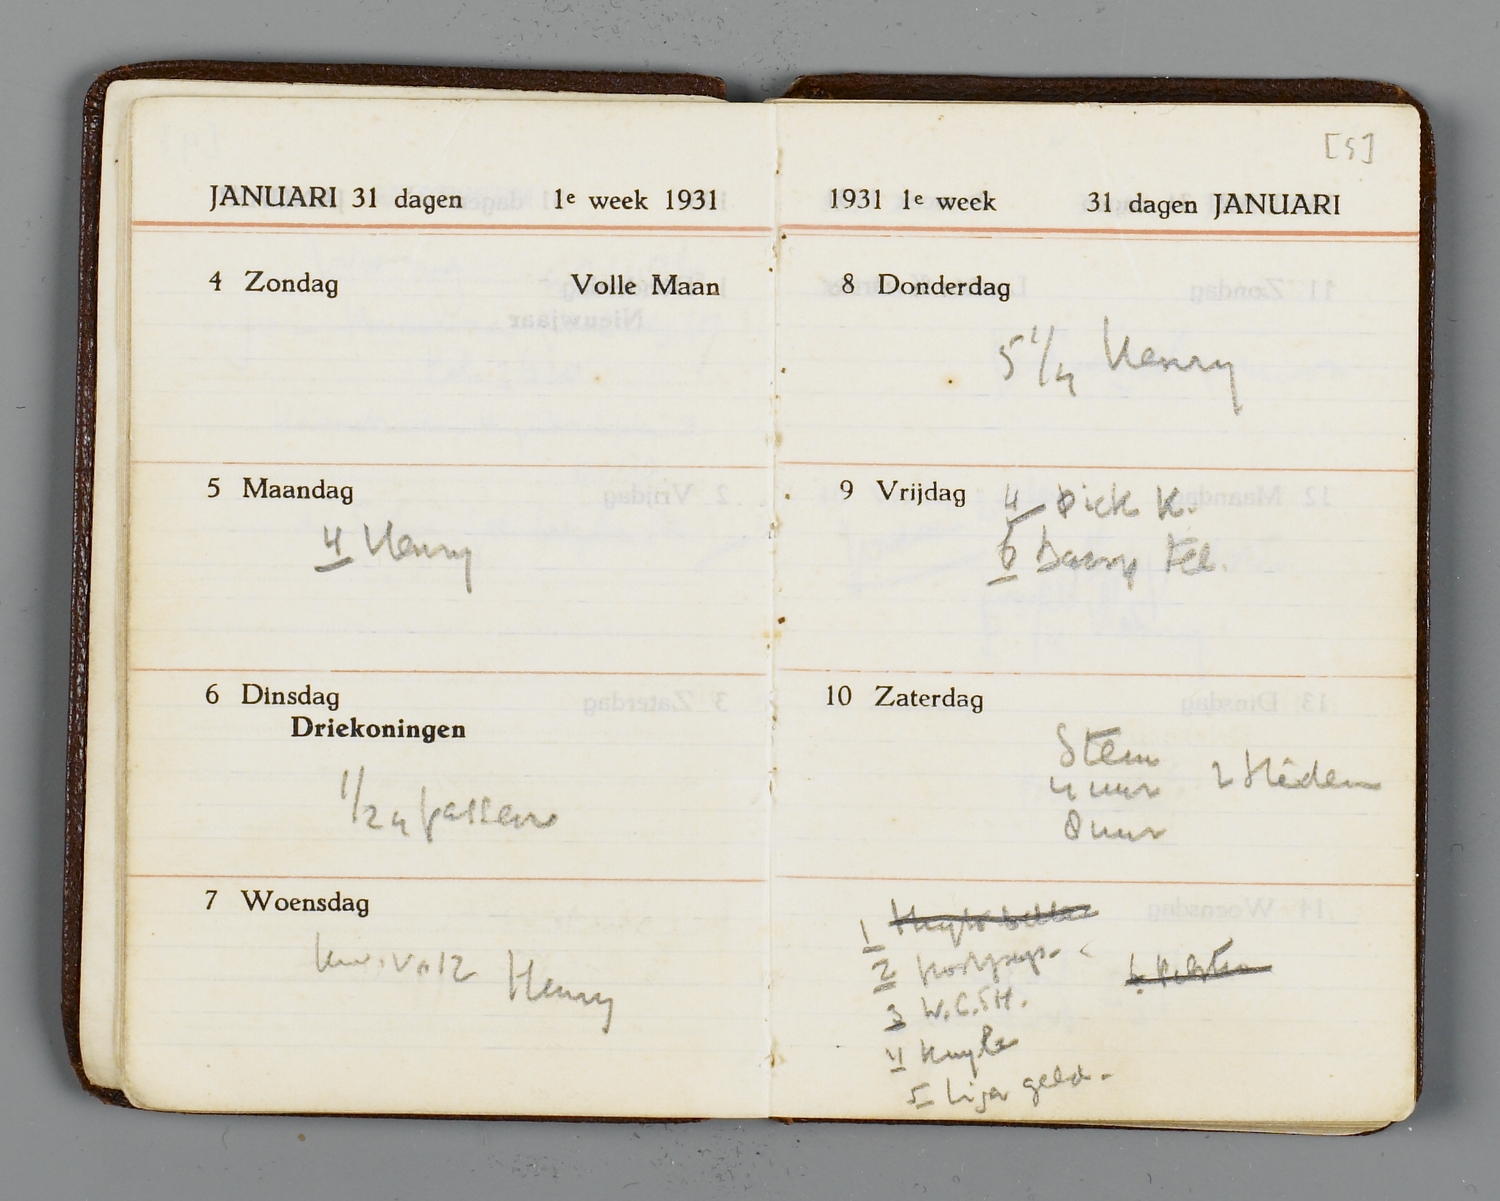 JANUARI 31 dagen 1e week 1931
4 Zondag Volle Maan
5 Maandag
4 Henry
6 Dinsdag
Driekoningen
1/24 passen
7 Woensdag
Henry
[5]
1931 1e week 31 dagen JANUARI
8 Donderdag
5 1/4 Henry
9 Vrijdag 4 Dick K.
6 Tel.
10 Zaterdag
Stem
4 uur
8 uur
1
2
3 W.C.
4 Kuyle
5 geld.